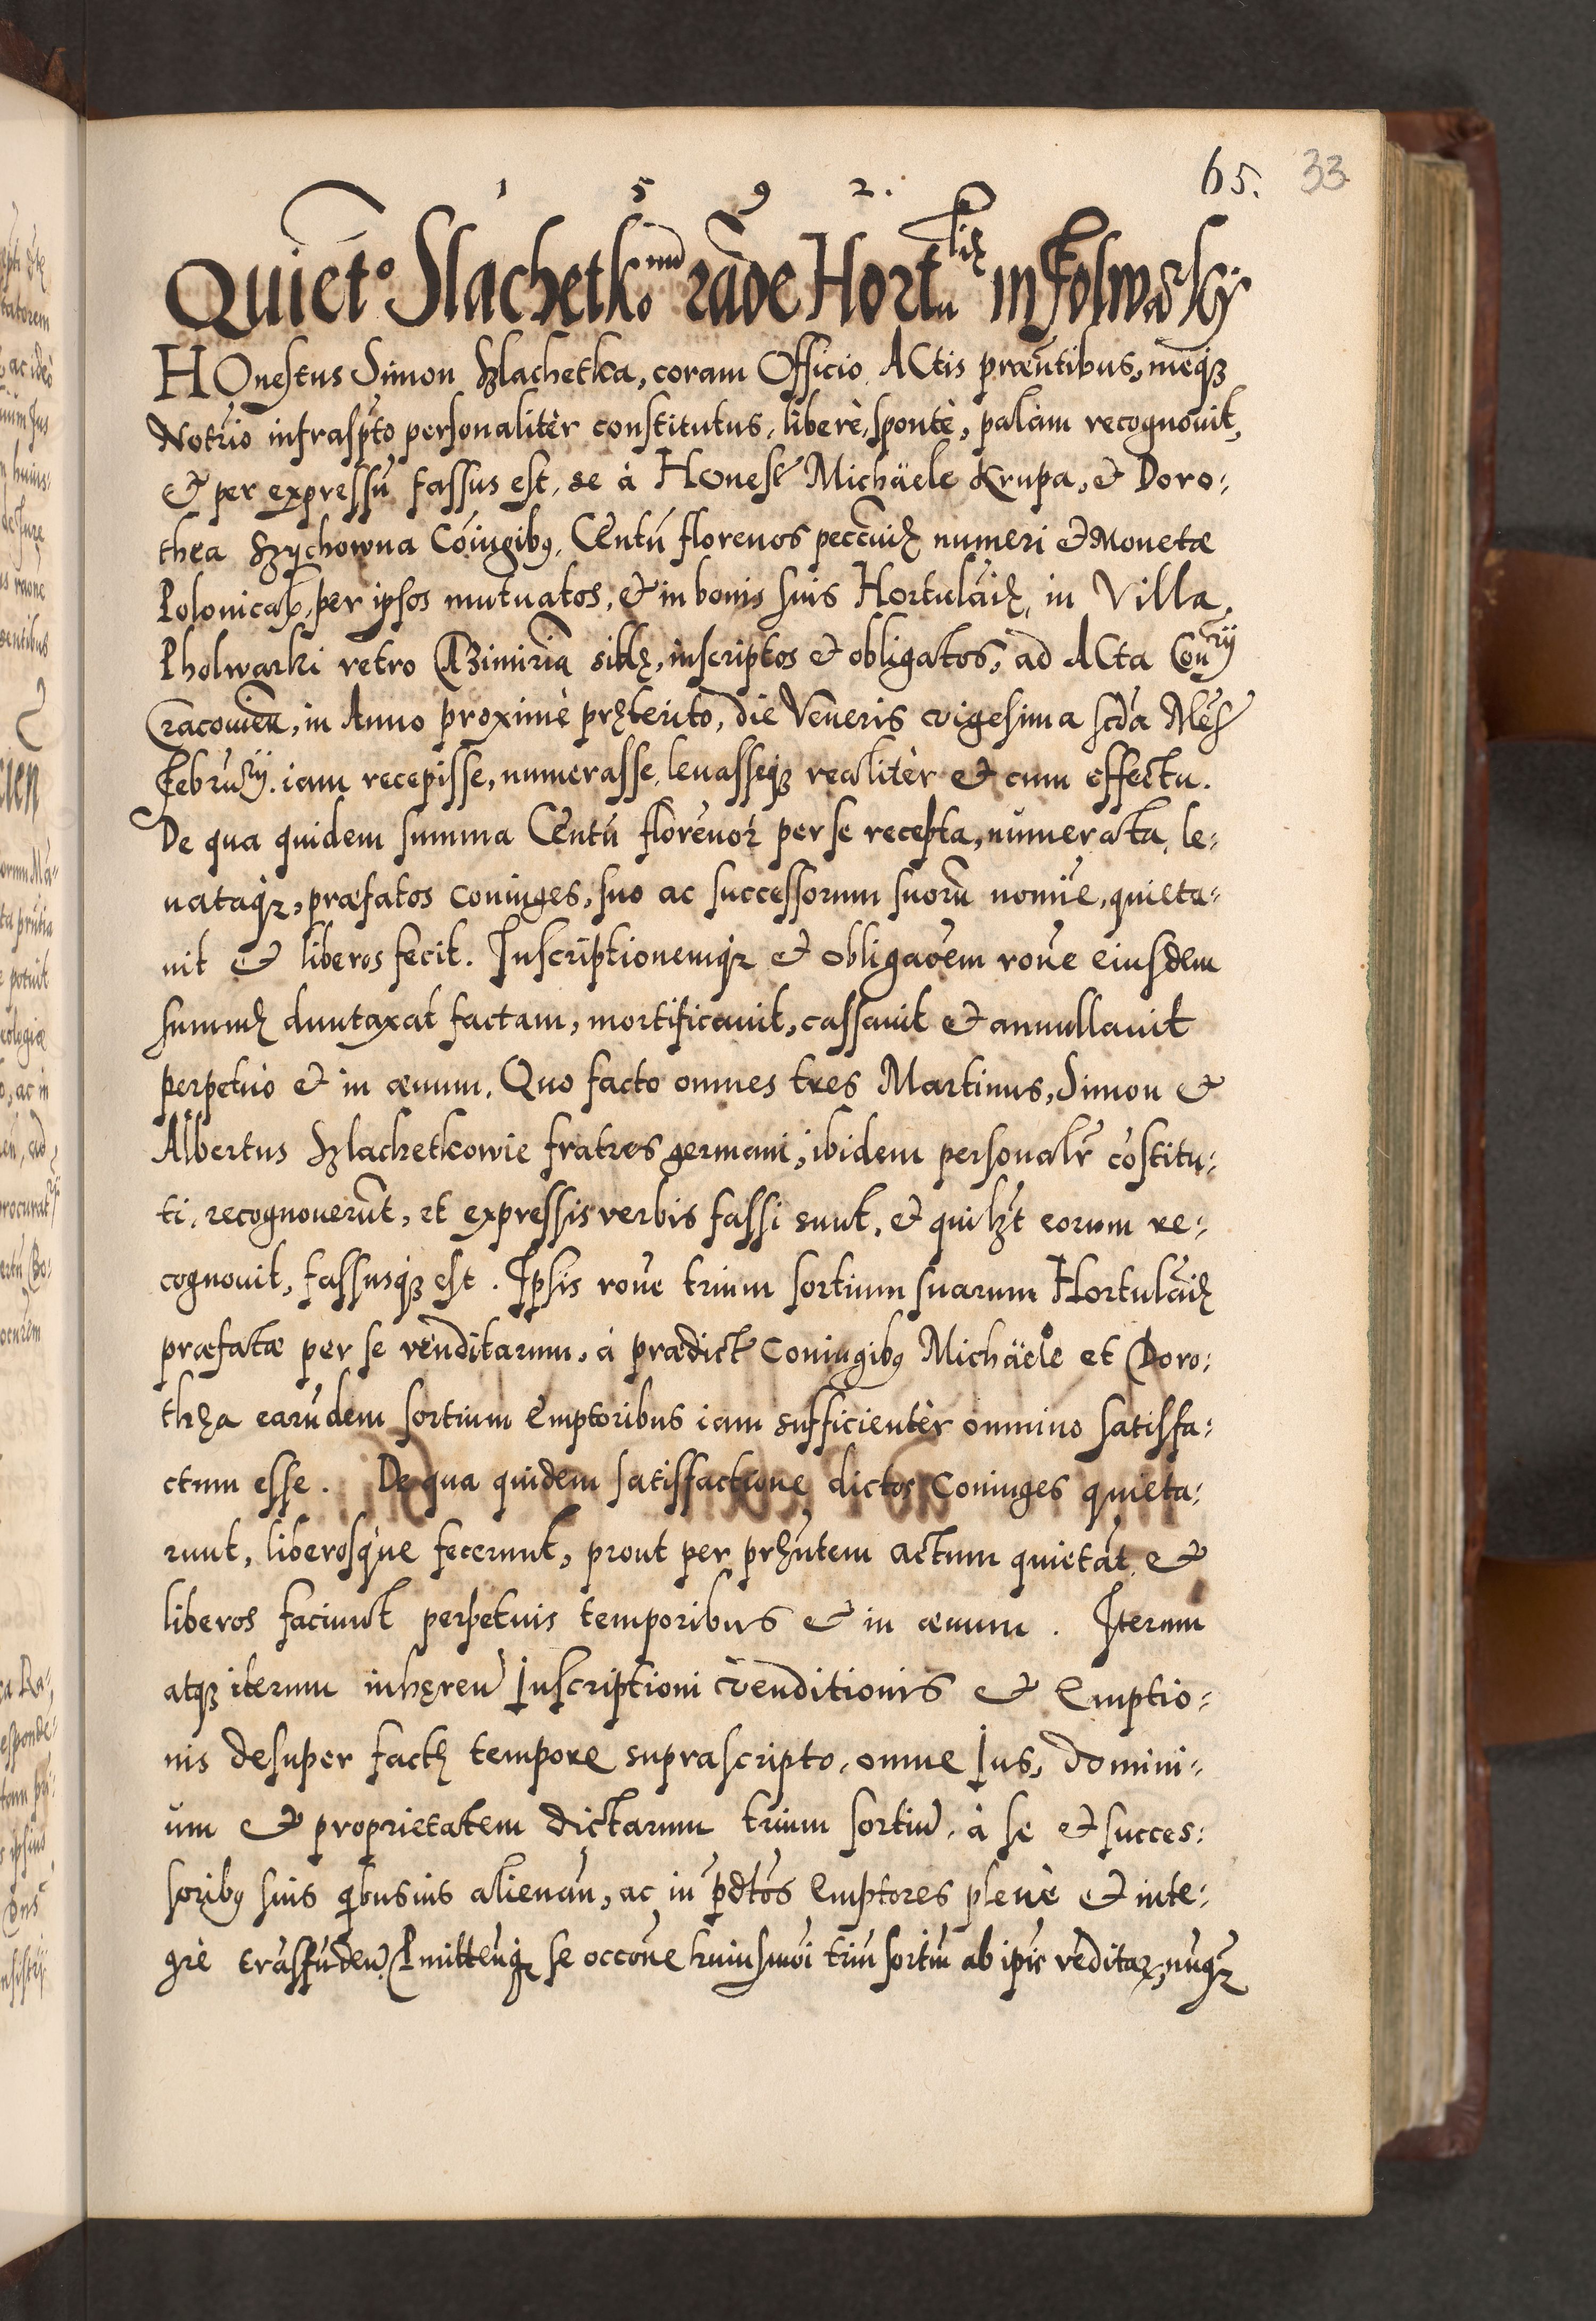 1 5 9 2. 65. 33
Quiet͠o Slachetkonu͠ ra͠oe Hortuliꝫ in Folwarky
HOnestus Simon Szlachetka, coram Officio Actis præu͠tibus, meqꝫ
Not͠rio infrasp͠to personalitèr constitutus, liberè, spontè, palàm recognouit,
& per expressu͠ fassus est, se à Honest͠ Michäele Krupa, & Doro:
thea Szychowna Co͠iugibꝰ, Centu͠ florenos pecc͠niꝫ numeri & Monetæ
Polonical͠, per ipsos mutuatos, & in bonis suis Hortula͠iꝫ, in Villa
Pholwarki retro Cazimiria͠ sitꝫ, inscriptos & obligatos, ad ACta Con͠rij
Cracouien͠, in Anno proximè prꝫterito, die Veneris vigesima sc͠da Mes͠
Febru͠rij. iam recepisse, numerasse, leuasseqꝫ realitèr & cum effectu.
De qua quidem summa Centu͠ floreno͠r per se recepta, numerata, le:
uataqꝫ, præfatos coniuges, suo ac successorum suoru͠ nomi͠e, quieta:
uit & liberos fecit. Inscriptionemqꝫ & obliga͠oem ro͠ne eiusdem
summꝫ duntaxat factam, mortificauit, cassauit & annullauit
perpetuò & in æuum. Quo facto omnes tres Martinus, Simon &
Albertus Szlachetkowie fratres germani, ibidem personalr͠ co͠stitu:
ti, recognoueru͠nt, et expressis verbis fassi sunt, & quilꝫt eorum re:
cognouit, fassusqꝫ est. Ipsis ro͠ne trium sortium suarum Hortula͠iꝫ
præfatæ per se venditarum, à prædict͠ Coniugibꝰ Michäele et Doro:
thꝫa earu͠dem sortium Emptoribus iam sufficientèr omnino satisfa:
ctum esse. De qua quidem satisfactione dictos Coniuges quieta:
runt, liberosq̀ue fecerunt, prout per prꝫu͠tem actum quieta͠t &
liberos faciunt perpetuis temporibus & in æuum. Iterum
atqꝫ iterum inhęren͠ Inscriptioni venditionis & Emptio:
nis desuper factꝫ tempore suprascripto, omne Ius, domini:
um & proprietatem dictarum trium sortiu͠, à se & succes:
soribꝰ suis quibusuis alienan͠, ac in p͠dtos Emptores plenè & inte:
grè tra͠sfunden͠, Pmittenqꝫ se occo͠ne huiusmo͠i triu͠ sortiu͠ ab ip͠is ve͠ditaꝝ, nu͠qꝫ